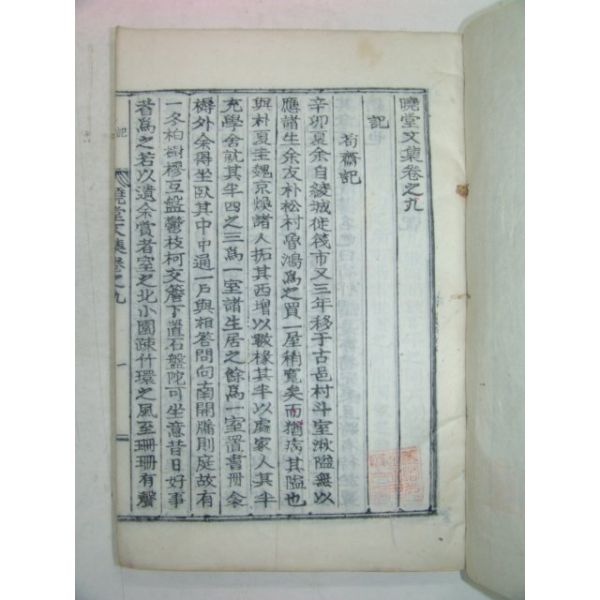 曉堂文集卷之九
記
荀齋記
辛卯夏余自綾城徙筏市又三年移于古邑村斗室湫隘無以
應諸生余友朴松村魯鴻爲之買一屋稍寬矣而猶病其隘也
與朴夏圭魏京煥諸人拓其西增以數椽其半以處家人其半
充學舍就其半四之三爲一室諸生居之餘爲一室置書冊衾
樽外余得坐臥其中中通一戶與相答問向南開牖則庭故有
一冬柏樹樛互盤鬱枝柯交簷下置石盤陀可坐意昔日好事
者爲之若以遺余賞者室之北小園疎竹環之風至珊珊有聲
曉堂文集卷之九
記
一